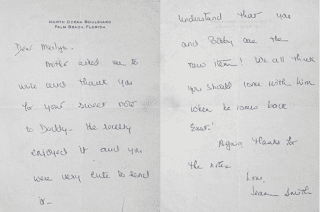 NORTH OCEAN BOULEVARD
PALM BEACH, FLORIDA
Dear Marilyn-
Mother asked me to
write and thank you
for your sweet note
to Daddy- He really
enjoyed it and you
were very cute to send
it-
Understand that you
and Bobby are the
new item! We all think
you should come with him
when he comes back
East!
Again, thanks for
the note
Love,
Jean Smith